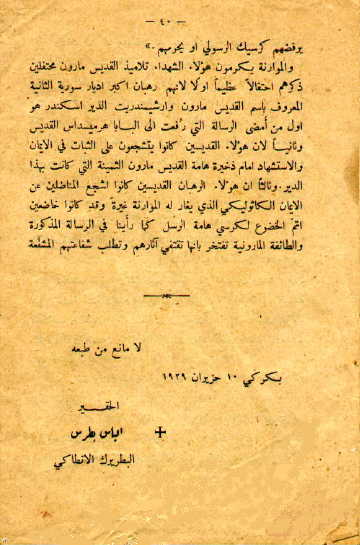 — ٤٠ —
يرفضهم كرسيك الرسولي او يحرمهم .»
والموارنة يكرمون هؤلاء الشهداء تلاميذ القديس مارون محتفلين
ذكرهم احتفالاً عظيماً اولاً لانهم رهبان اكبر اديار سورية الثانية
المعروف باسم القديس مارون وارشيمندريت الدير اسكندر هو
اول من أمضى الرسالة التي رفعت الى البابا هرميسداس القديس
وثانياً لان هؤلاء القديسين كانوا يتشجعون على الثبات في الايمان
والاستشهاد امام ذخيرة هامة القديس مارون الثمينة التي كانت بهذا
الدير. وثالثاً ان هؤلاء الرهبان القديسين كانوا اشجع المناضلين عن
الايمان الكاثوليكي الذي يغار له الموارنة غيرة وقد كانوا خاضعين
اتم الخضوع لكرسي هامة الرسل كما رأينا في الرسالة المذكورة
والطائفة المارونية تفتخر بانها تقتفي آثارهم وتطلب شفاعتهم المشفّعة
لا مانع من طبعه
بكركي ١٠ حزيران ١٩٢٩
الحقير
✝ الياس بطرس
البطريرك الانطاكي